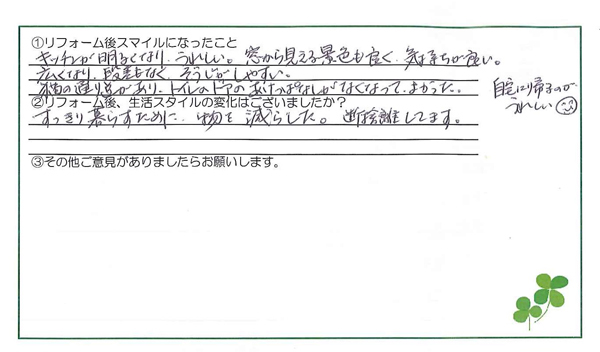 ①リフォーム後スマイルになったこと
キッチンが明るくなり、うれしい。窓から見える景色も良く、気持ちが良い。
広くなり、段差もなく、そうじがしやすい。
猫の通り道があり、トイレのドアのあけっぱなしがなくなって、よかった。
自宅に帰るのが、
うれしい
②リフォーム後、生活スタイルの変化はございましたか？
すっきり暮らすために、物を減らした。断捨離してます。
③その他ご意見がありましたらお願いします。